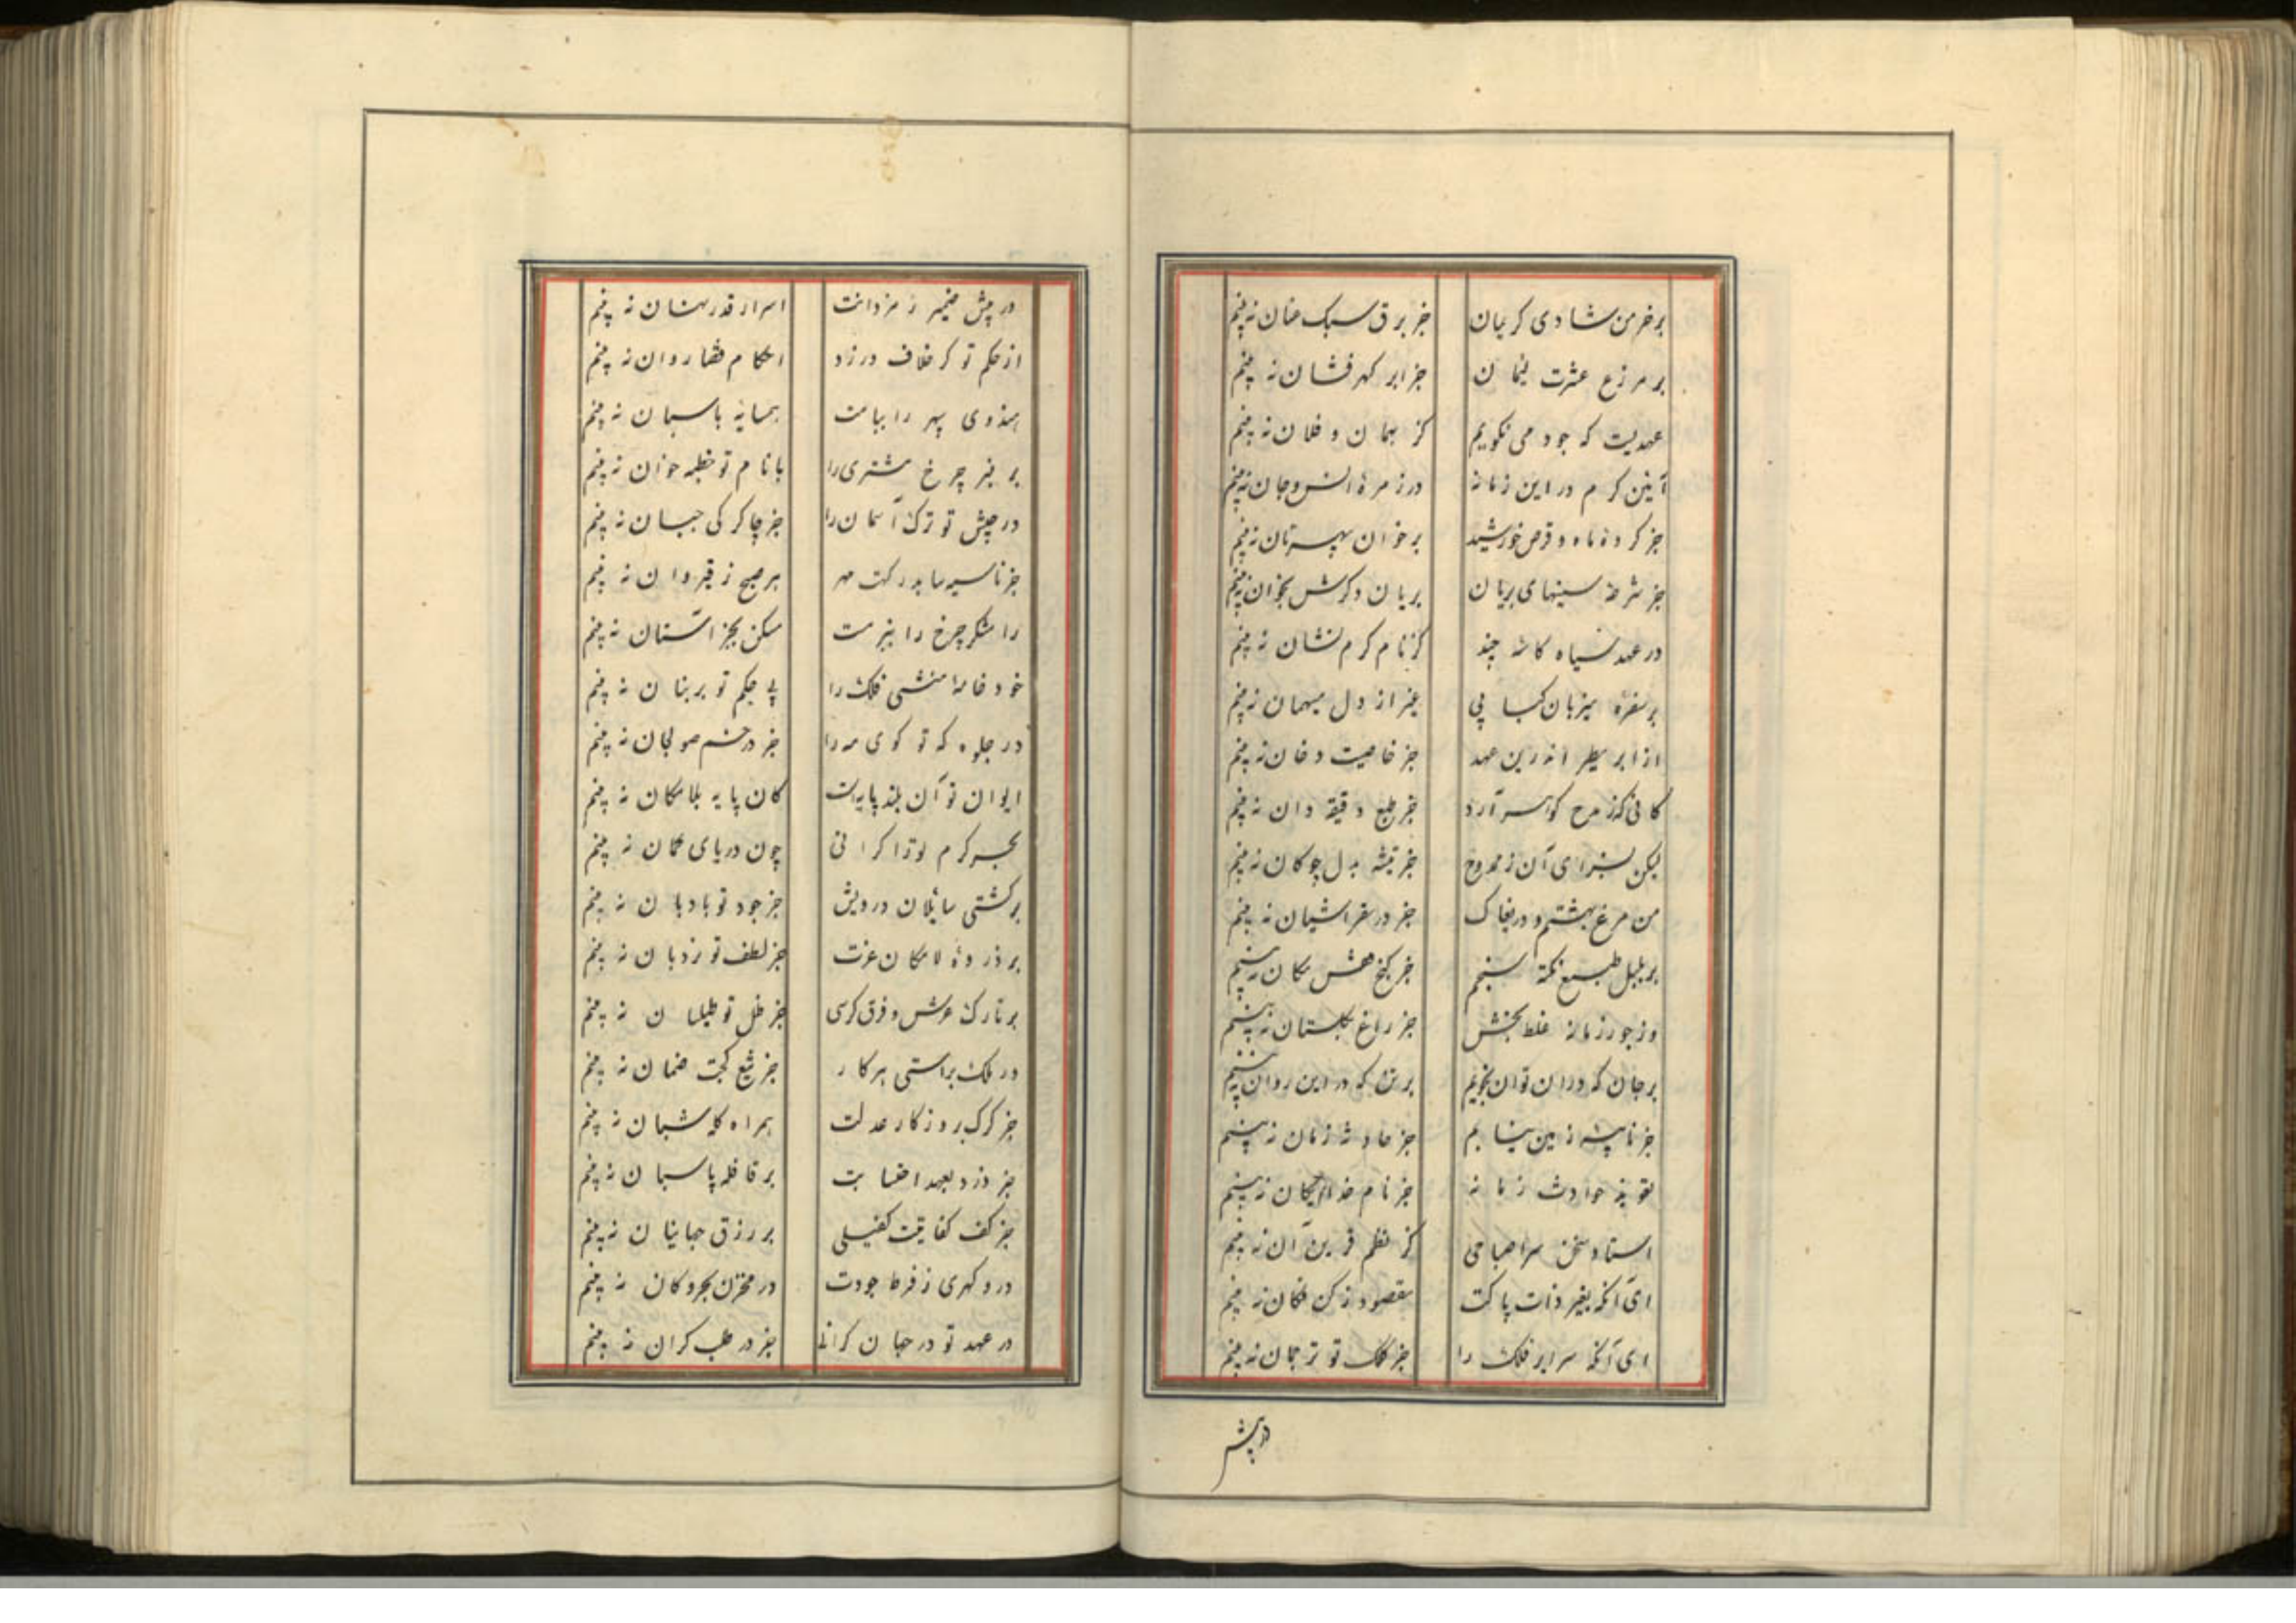 برخرمن شادی کریمان جز برق سبک عنان نه بینم
بر مزرع عشرت لئیمان جز ابر کهرفشان نه بینم
عهدیست که جود می نکویم کز بهمان و فلان نه بینم
آئین کرم در این زمانه در زمرهٔ انس وجان نه بینم
جز کردهٔ ماه و قرص خورشید برخوان سپهر نان نه بینم
جز شرحهٔ سینهای بریان بریان دکرش بخوان نه بینم
در عهد سیاه کاسهٔ چند کز نام کرم نشان نه بینم
برسفرهٔ میزبان کبابی غیر از دل میهمان نه بینم
از ابر مطیر اندرین عهد جز خاصیت دخان نه بینم
کانی کز مدح کوهر آرد جز طبع دقیقه دان نه بینم
لیکن بسزای آن ز ممدوح جز تیشه به دل چو کان نه بینم
من مرغ بهشتم و در خاک جز در سقر اشیان نه بینم
بر بلبل طبع نکته سنجم جز کنج قفس مکان نه بینم
وز جور زمانه غلط بخش جز زاغ بکلستان نه بینم
بر جان که در ان توان نجویم بر تن که در این روان نه بینم
جز نایبهٔ زمین نیابم جز حادثهٔ زمان نه بینم
تعویذ حوادث زمانه جز نام خدایکان نه بینم
استاد سخن سرا صباحی کز نظم قرین آن نه بینم
ای آنکه بغیر ذات پاکت مقصود ز کن فکان نه بینم
ای آنکه سرایر فلک را جز کلک تو ترجمان نه بینم
در پیش
در پیش ضمیر رمزدانت اسرار قدر نهان نه بینم
از حکم تو کر خلاف ورزد احکام قضا روان نه بینم
هندوی سپهر را ببامت همسایه پاسبان نه بینم
بر منبر چرخ مشتری را با نام تو خطبه خوان نه بینم
در جیش تو ترک آسمان را جز چاکر کی جبان نه بینم
جز ناسیه سا بدرکهت مهر هر صبح ز قیروان نه بینم
رامشکر چرخ را ببزمت مسکن بجز استان نه بینم
خود خامهٔ منشی فلک را بی حکم تو بر بنان نه بینم
در جلوه که تو کوی مه را جز در خم صولجان نه بینم
ایوان تو آن بلند پایه است کان پایه بلامکان نه بینم
بحر کرم تو را کرانی چون دریای عمان نه بینم
بر کشتی سائلان درویش جز جود تو بادبان نه بینم
بر ذروهٔ لامکان عزت جز لطف تو نردبان نه بینم
بر تارک عرش و فرق کرسی جز ظل تو طیلسان نه بینم
در ملک براستی هر کار جز تیغ کجت ضمان نه بینم
جز کرک بروزکار عدلت همراه کله شبان نه بینم
جز دزد بعهد احتسابت بر قافله پاسبان نه بینم
جز کف کفایتت کفیلی بر رزق جهانیان نه بینم
در و کهری ز فرط جودت در مخزن بحر و کان نه بینم
در عهد تو در جهان کرانی جز در کران نه بینم